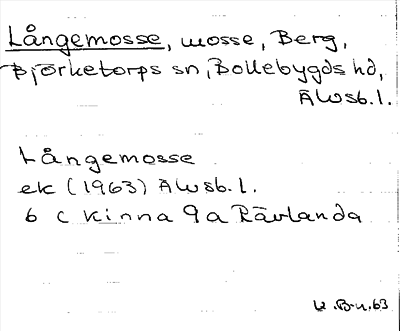 Långemosse, mosse, Berg,
Björketorps sn, Bollebygds hd,
Älvsb. l.
Långemosse
ek (1963) Älvsb. l.
6 C Kinna 9a Rävlanda
63